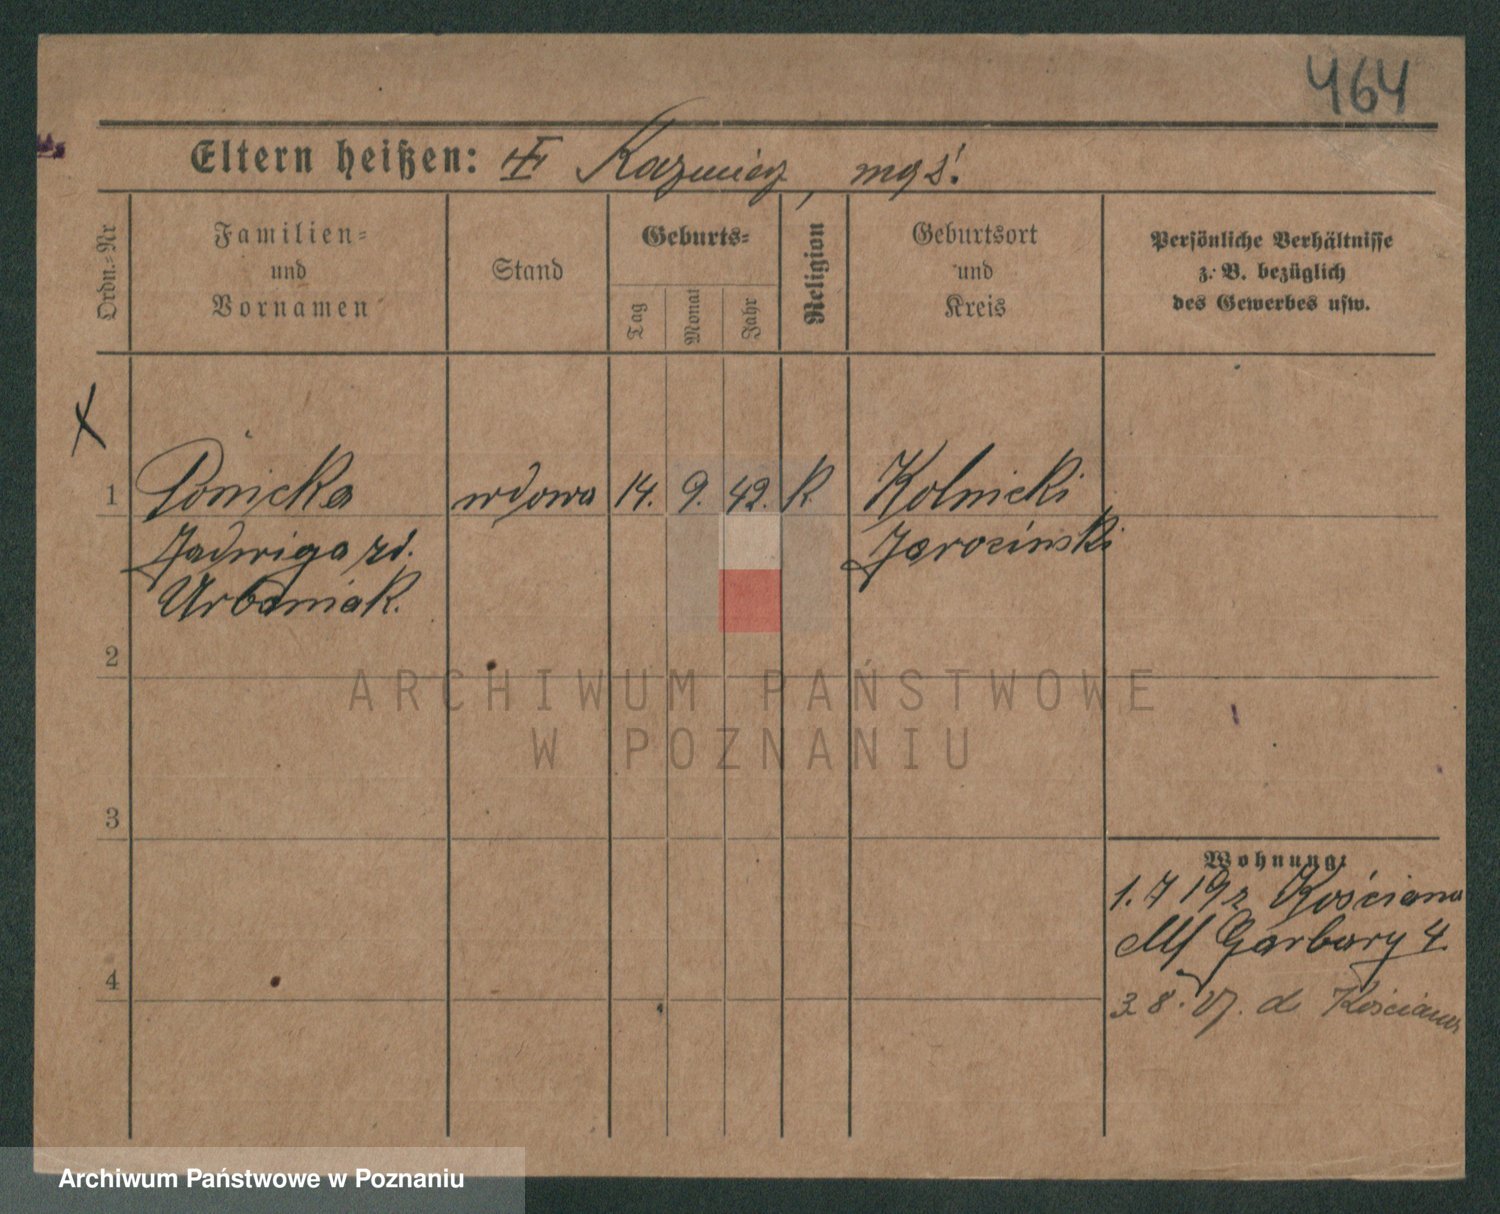 464
Eltern heißen: Kazmierz, mąż!
Ordn.-Nr
Familien-
und
Vornamen
Stand
Geburts-
Tag
Monat
Jahr
Religion
Geburtsort
und
Kreis
Persönliche Verhältnisse
z. B. bezüglich
des Gewerbes usw.
X
1 Ponicka wdowa 14. 9. 42. K Kolnicki
Jadwiga zd. Jarocinski
Urbaniak.
2
ARCHIWUM PAŃSTWOWE
W POZNANIU
3
Wohnung:
1. 7 19 z Kościana
Garbary 4
4
3. 8. 27. do Kościana
Archiwum Państwowe w Poznaniu